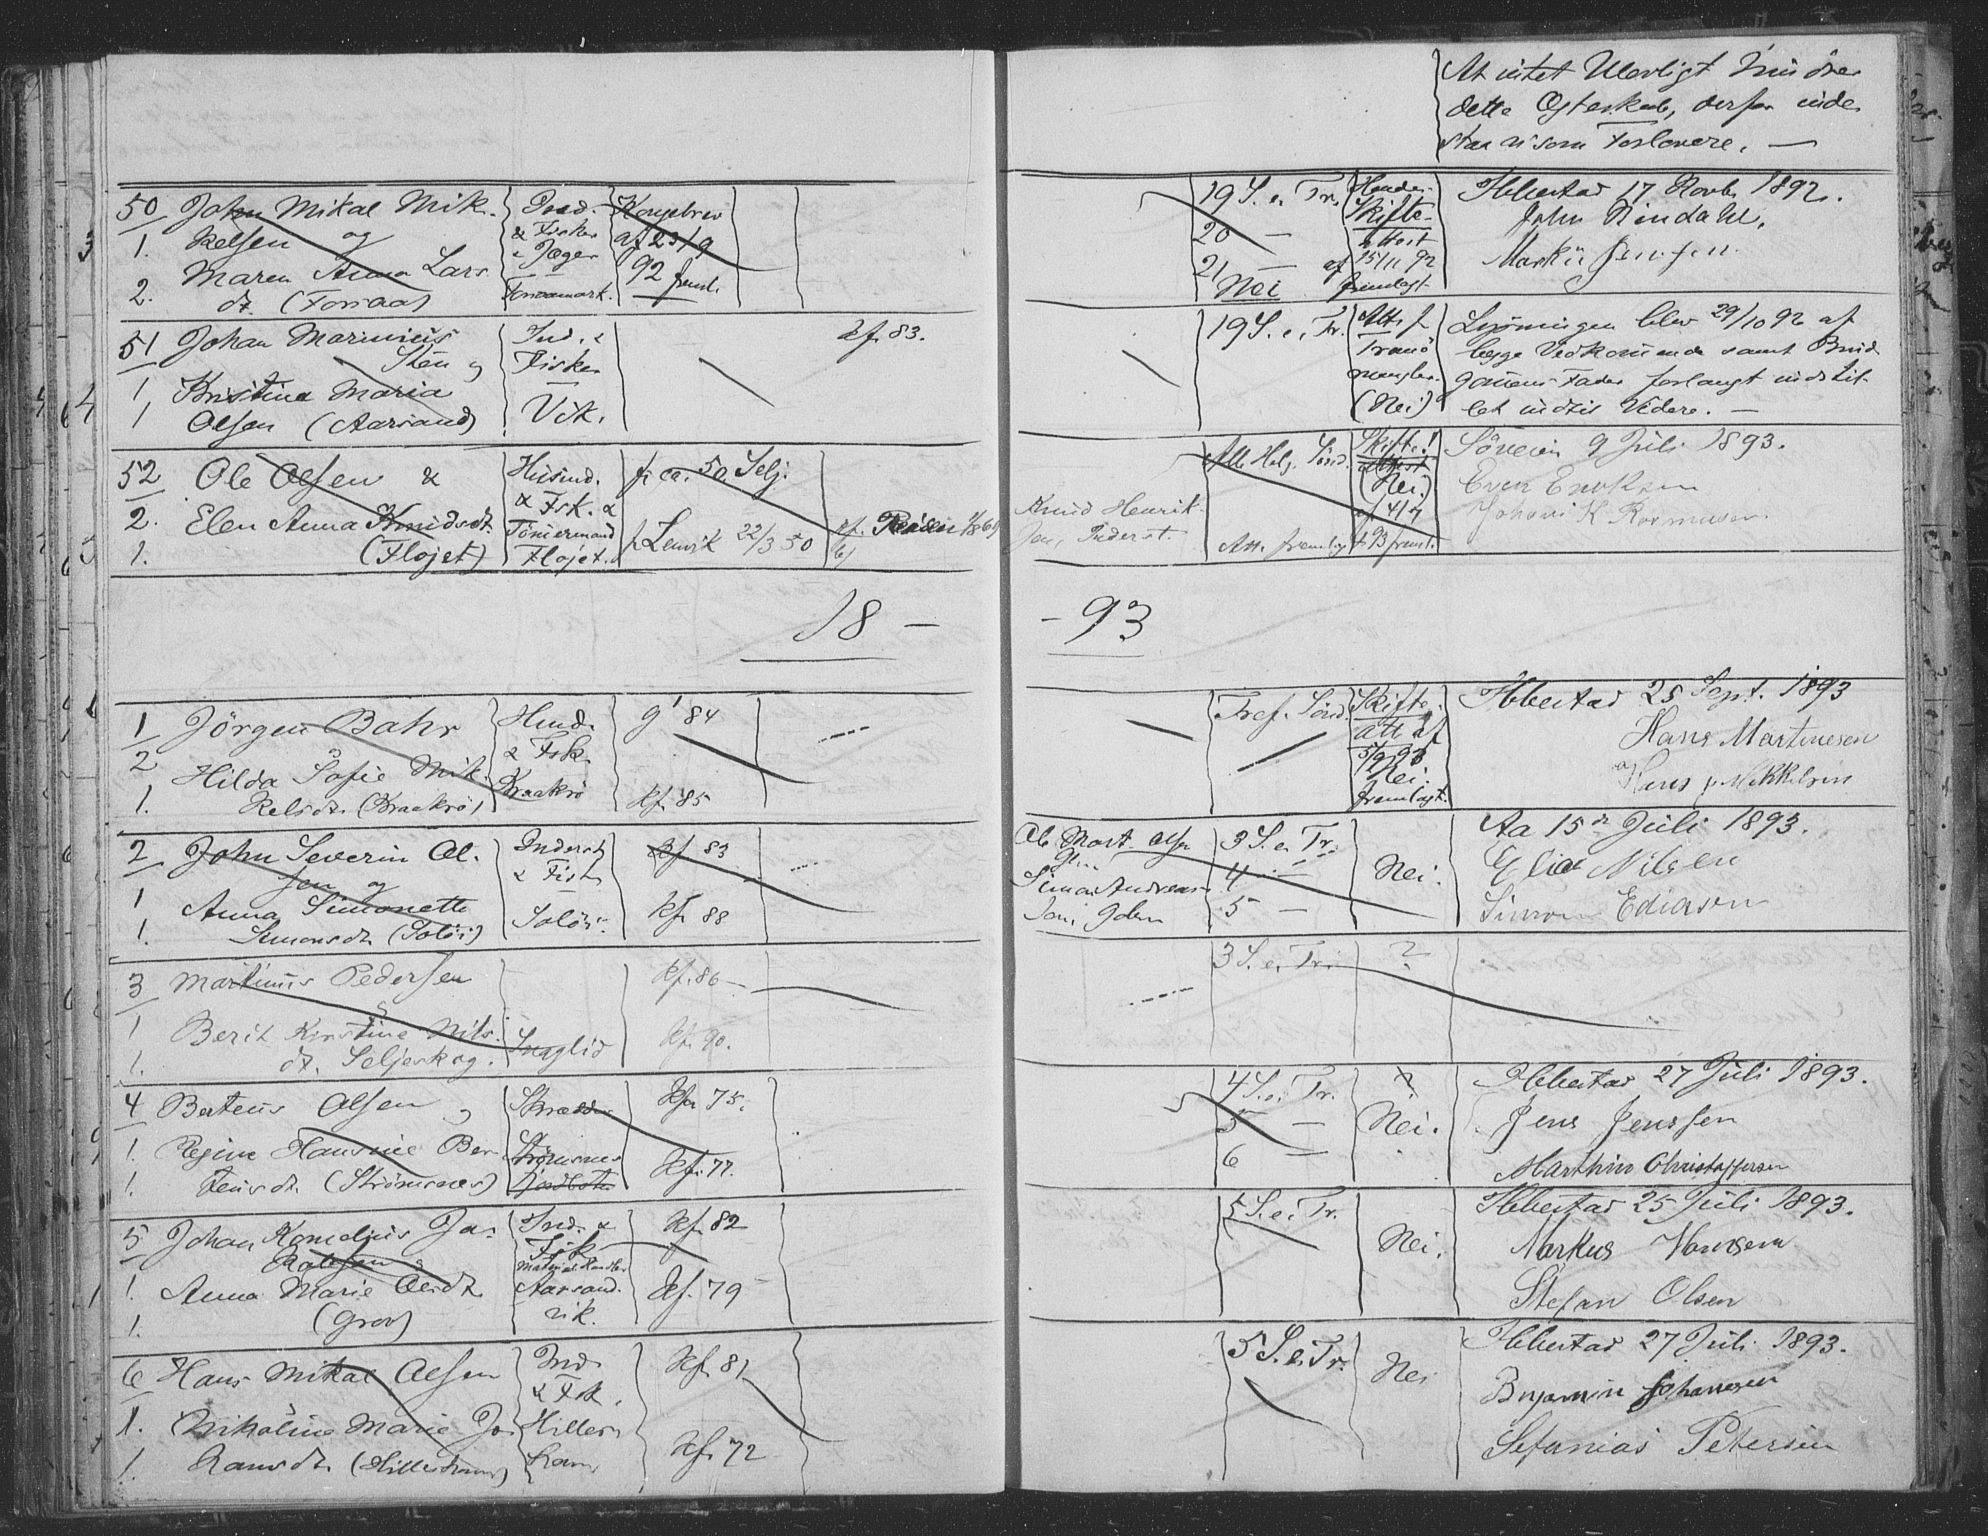 At intet Ulovligt
dette Ægteskab, derfor inde
staa vi som Forlovere. —
50 John Mikal Mik-
1. kelsen og
2. Maren Anna Lars
dt. (Forsaa)
Ind.
& Fisker
Jæger
Kongebrev
af 23/9
92 freml.
19 S. e. Tr.
20 —
21 —
Nei
Skifte-
attest
af 15/11 92
fremlagt
Ibbestad 17 Novbr 1892.
John Rindahl.
Marküs Jensen
51 Johan Marinius
Sten og
1 Kristina Maria
1 Olsen (Aarsand)
Ind. &
Fisker
—
Vik.
Kf. 83.
19 S. e. Tr.
Att. f.
Tranö
mangler.
(Nei)
Lysningen blev 29/10 92 af
begge Vedkommende samt Brud
gommens Fader forlangt indstil-
let indtil Videre. —
52 Ole Olsen &
2. Elen Anna Knudsdt.
1. (Flojet)
Husmd.
& Fsk. &
Tömermand
Flojet.
f. ca. 50 Selj.
f. Lenvik 22/3 50
Knud Henrik-
Alle Helg. Sönd.
Att. fremlag
Skifte!
attest
(Nei.)
af 4/7
93 freml.
Söveien 9 Juli 1893.
Even Eriksen
Johan K Rasmusen.
18 —
— 93
1 Jörgen Bahr
2 Hilda Sofie Mik-
1. kelsdt. (Kraakrö)
Husmd.
& Fsk.
Kraakrö
g' 84
Kf. 85
Tref. Sönd.
Skifte.
att. af
5/9 93
Nei.
fremlagt.
Ibbestad 25 Sept. 1893
Hans Martinesen
Hans p Mikkelsen
2 John Severin Ol-
sen og
1 Anna Simonette
1. Simonsdt. (Solöi)
Inderst
& Fisk.
—
Solöi.
Kf 83
Kf. 88
Ole Mart. Olsen
Simon Andreas
3 S. e. Tr.
4 —
5 —
Nei.
Aa 15de Juli 1893.
Elias Nilsen
Simon Ediasen
3 Martinus Pedersen
&
1 Berit Kirstine Nils-
1. dt. Seljeskog.
Kf. 86 —
Kf. 90.
3 S. e. Tr.
?
4 Berteus Olsen og
1. Regine Hansine Ber-
1. teusdt. (Strömsnes)
Skrædder
Strömsnes
Kf. 75.
Kf. 77.
4 S. e. Tr.
5 —
6 —
?
Nei.
Ibbestad 27 Juli 1893.
Jens Jenssen
Marthin Christoffersen
5 Johan Kornelius Ja-
kobsen &
1. Anna Marie Olsdt.
1. (Grov)
Ind. &
Fsk.
Aarsand.
vik.
Kf. 82
Kf. 79
5 S. e. Tr.
Nei.
Ibbestad 25 Juli 1893.
Markus Hansen
Stefan Olsen
6 Hans Mikal Olsen
1. Nikoline Marie Jo-
1. hansdt. (Hilleshamn)
Ind.
& Fsk.
Hilles-
hamn
Kf. 81
Kf. 72
5 S. e. Tr.
Nei
Ibbestad 27 Juli 1893.
Benjamin Johannesen
Sefanias Petersen